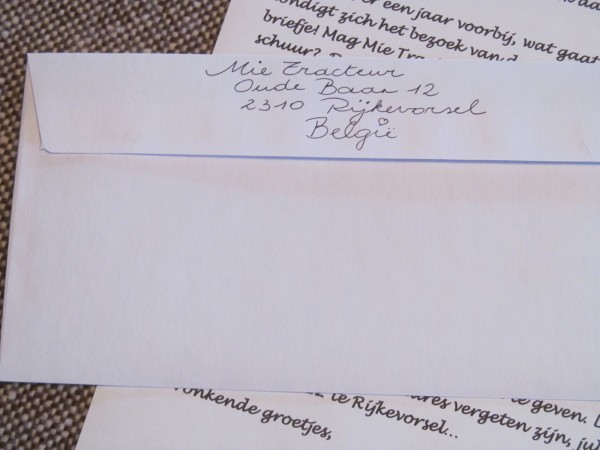 er een jaar voorbij, wat gaat
kondigt zich het bezoek van d
briefje! Mag Mie Tra
schuur?
Mie Tracteur
Oude Baan 12
2310 Rijkevorsel
België
vergeten te geven.
ares vergeten zijn, jul
te Rijkevorsel...
ronkende groetjes,